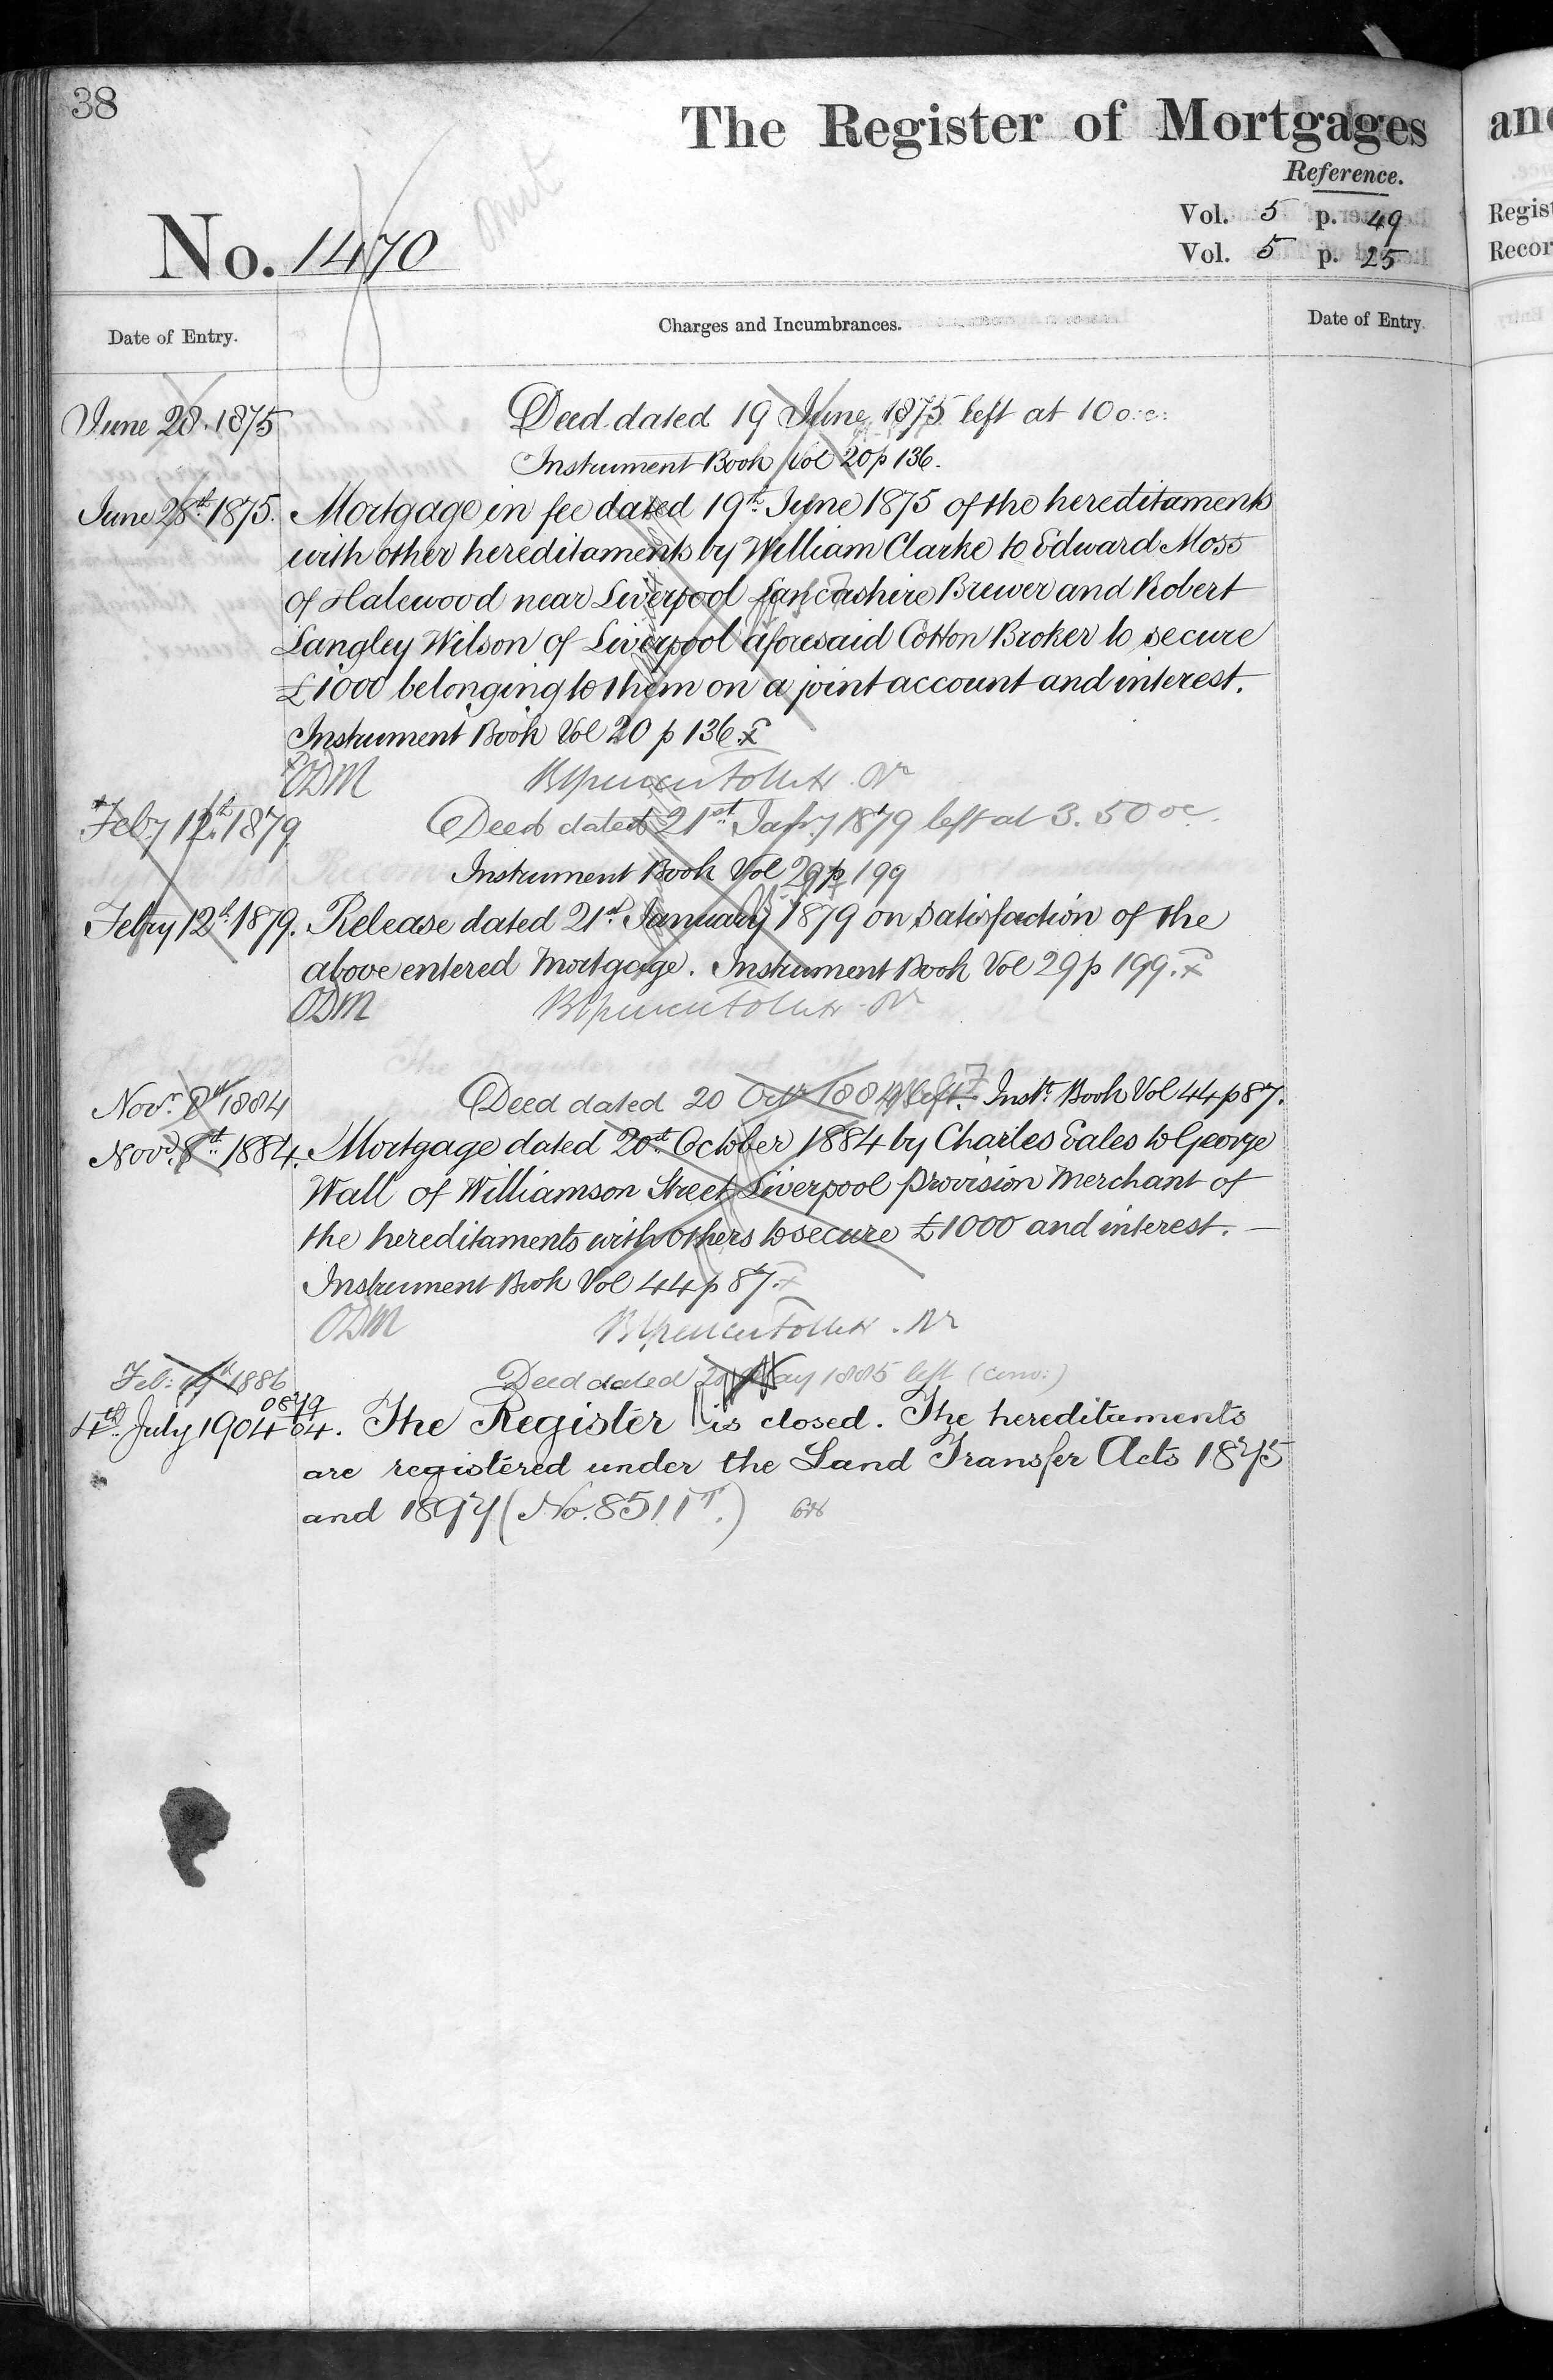 38
The Register of Mortgages
Reference.
No. 1470
omit
Vol. 5 p. 49
Vol. 5 p. 25
Date of Entry.
Charges and Incumbrances.
Date of Entry.
June 28. 1875 Deed dated 19 June 1875 left at 10 o:c:
Instrument Book Vol 20 p 136.
June 28th. 1875. Mortgage in fee dated 19th. June 1875 of the hereditaments
with other hereditaments by William Clarke to Edward Moss
of Halewood near Liverpool Lancashire Brewer and Robert
Langley Wilson of Liverpool aforesaid Cotton Broker to secure
£1000 belonging to them on a joint account and interest.
Instrument Book Vol 20 p 136.
ODM
Feby 12th. 1879. Deed dated 21st. Jany 1879 left at 3.50 oc.
Instrument Book Vol 29 p 199
Febry 12th. 1879. Release dated 21st January 1879 on satisfaction of the
above entered Mortgage. Instrument Book Vol 29 p 199.
ODM
Novr. 8th 1884 Deed dated 20 Octr 1884 left. Instt. Book Vol 44 p 87.
Novr. 8th. 1884. Mortgage dated 20th October 1884 by Charles Eales to George
Wall of Williamson Street Liverpool Provision Merchant of
the hereditaments with others to secure £1000 and interest.
Instrument Book Vol 44 p 87.
ODM
Feb: 19th 1886 Deed dated May 1885 left (conv:)
0879
4th. July 1904 04. The Register is closed. The hereditaments
are registered under the Land Transfer Acts 1875
and 1897 (No. 8511T.)
and
Regist
Recor